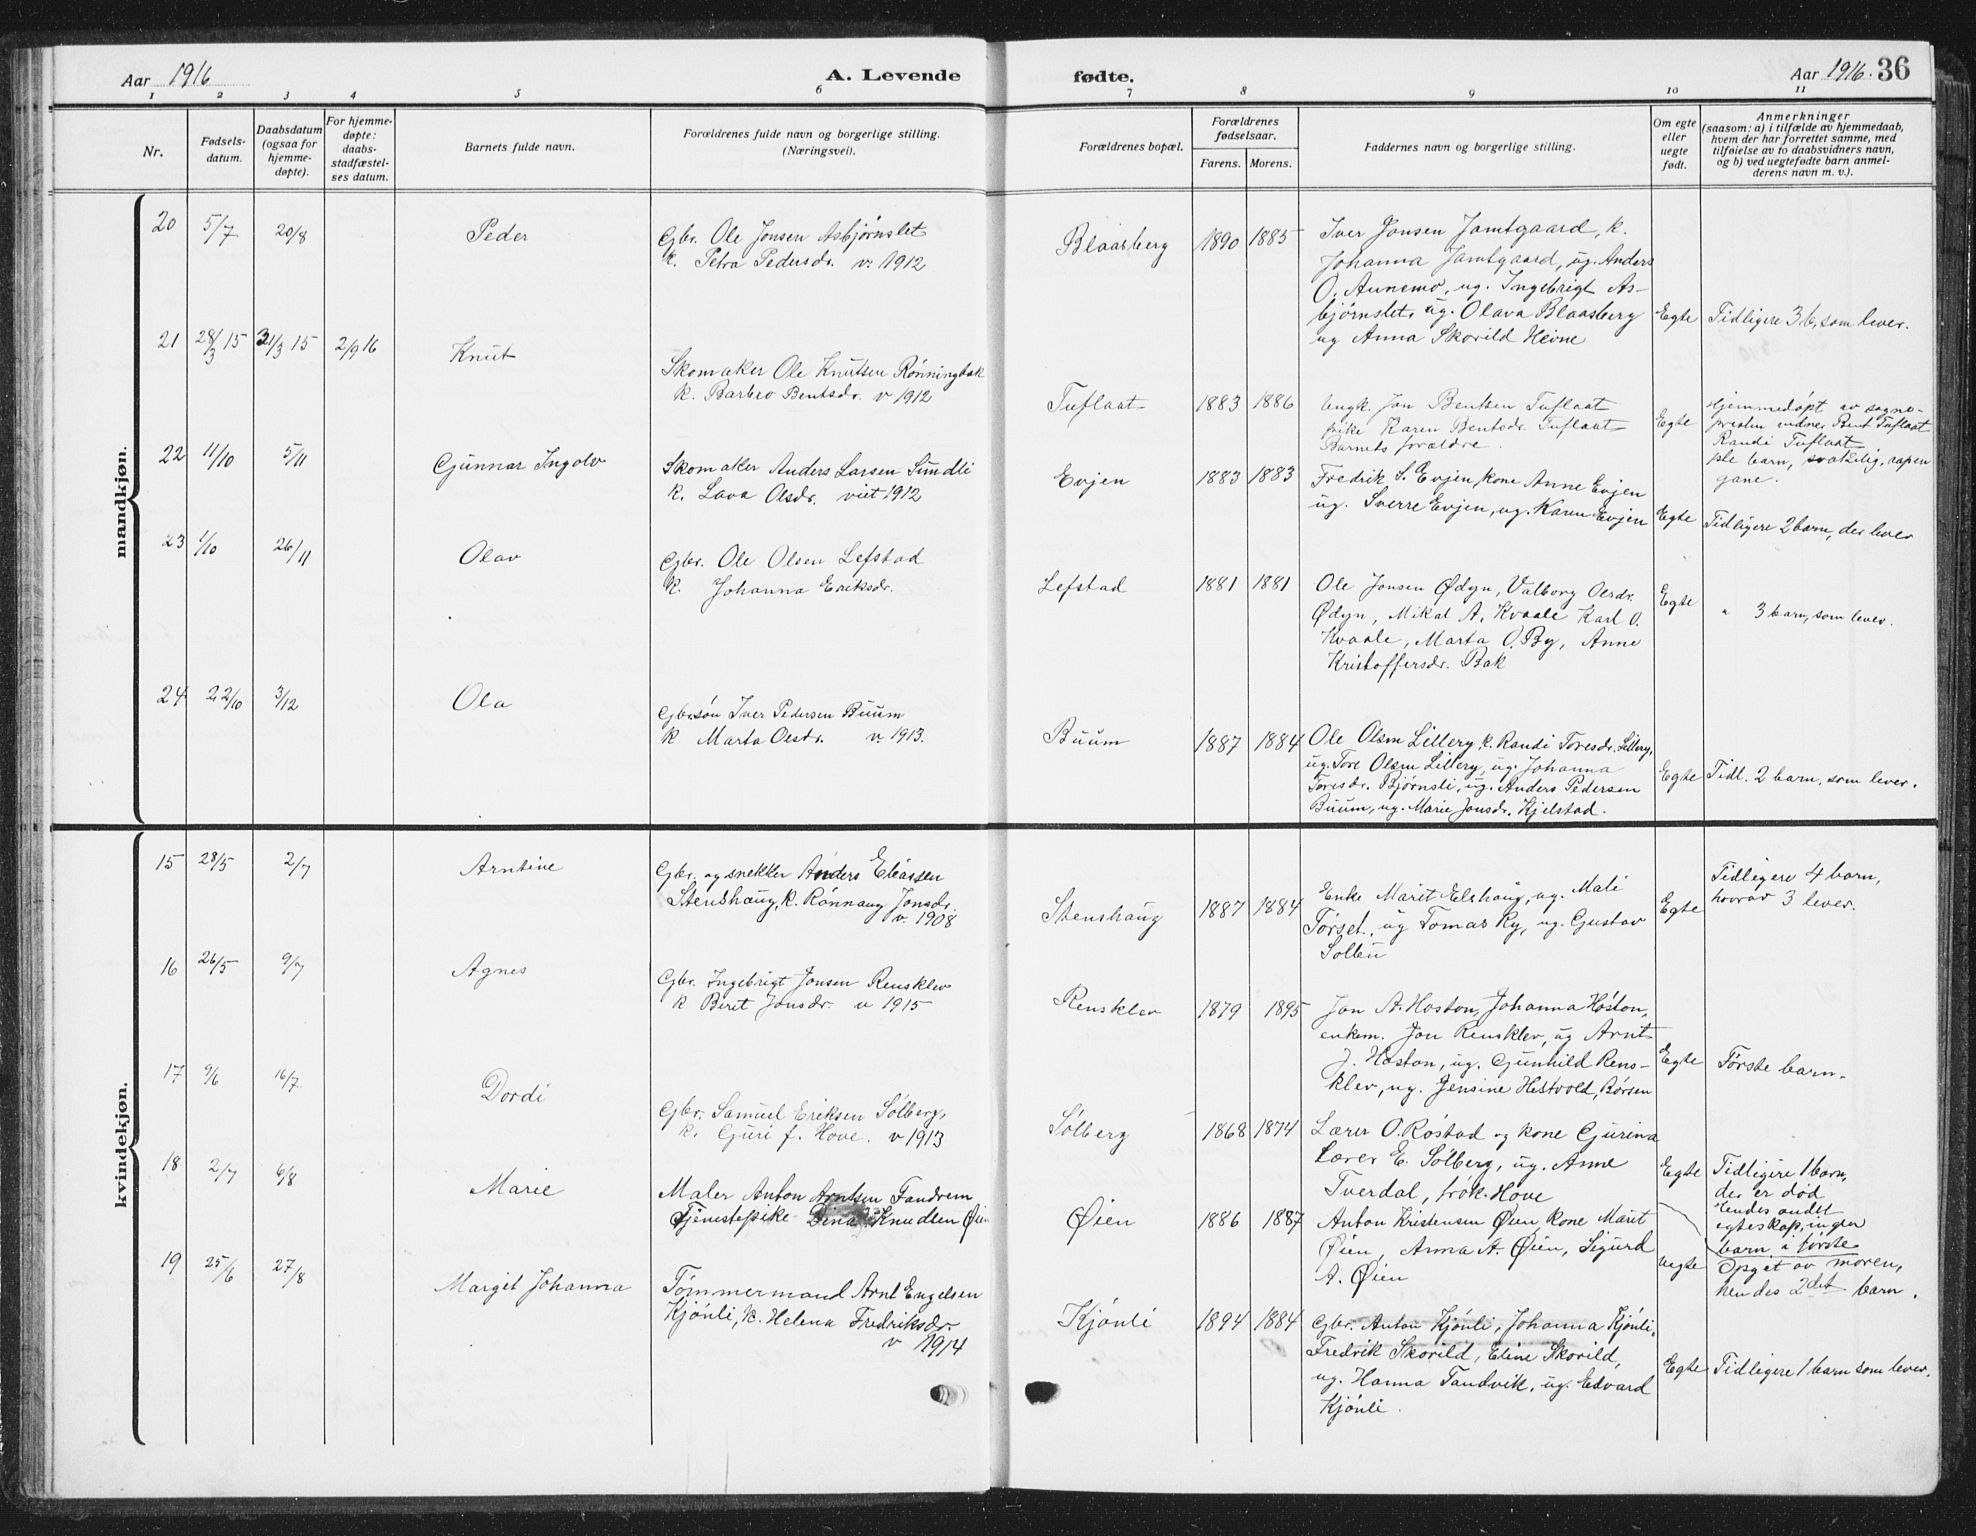 Aar 1916
A. Levende
fødte.
Aar 1916.
36
1 2 3 4 5 6 7 8 9 10 11
Nr.
Fødsels-
datum.
Daabsdatum
(ogsaa for
hjemme-
døpte).
For hjemme-
døpte:
daabs-
stadfæstel-
ses datum.
Barnets fulde navn.
Forældrenes fulde navn og borgerlige stilling.
(Næringsvei).
Forældrenes bopæl.
Forældrenes
fødselsaar.
Farens. Morens.
Faddernes navn og borgerlige stilling.
Om egte
eller
uegte
født.
Anmerkninger
(saasom: a) i tilfælde av hjemmedaab,
hvem der har forrettet samme, med
tilføielse av to daabsvidners navn,
og b) ved uegtefødte barn anmel-
derens navn m. v.).
mandkjøn.
20 5/7 20/8 Peder
Gbr. Ole Jonsen Asbjørnslet
k. Petra Pedersdr. v. 1912
Blaasberg 1890 1885
Iver Jonsen Jamtgaard, k.
Johanna Jamtgaard, ug. Anders
O. Aunemo, ug. Ingebrigt As-
bjørnslet, ug. Olava Blaasberg
ug Anna Skorild Hevne
Egte Tidligere 3 b, som lever.
21 28/3 15 21/3 15 2/9 16 Knut
Skomaker Ole Knutsen Rønningbak
k. Barbro Bentsdr. v 1912
Tuflaat 1883 1886
ungk. Jon Bentsen Tuflaat
pike Karen Bentsdr. Tuflaat
Barnets forældre.
Egte
Hjemmedøpt av sogne-
presten vidner Bent Tuflaat
Randi Tuflaat
gane.
22 11/10 5/11 Gunnar Ingolv
Skomaker Anders Larsen Sundli
k. Lava Olsdr. viet 1912
Evjen 1883 1883
Fredrik S. Evjen, kone Anne Evjen
ug. Sverre Evjen, ug. Karen Evjen
Egte Tidligere 2 barn, der lever
23 1/10 26/11 Olav
Gbr. Ole Olsen Lefstad
k. Johanna Eriksdr.
Lefstad 1881 1881
Ole Jonsen Ødyn, Valborg Olsdr.
Ødyn, Mikal A. Kvaale Karl O.
Kvaale, Marta O. By, Anne
Kristoffersdr. Bak
Egte " 3 barn, som lever.
24 22/10 3/12 Ola
Gbr.søn Iver Pedersen Buum
k Marta Olsdr. v. 1913.
Buum 1887 1884
Ole Olsen Lillery k. Randi Toresdr. Lillery,
ug. Tore Olsen Lillery, ug. Johanna
Toresdr. Bjørnsli, ug. Anders Pedersen
Buum, ug. Marie Jonsdr. Kjelstad.
Egte Tidl. 2 barn, som lever.
kvindekjøn.
15 28/5 2/7 Arntine
Gbr. og snekker Anders Eliassen
Stenshaug, k. Rønnaug Jonsdr.
v. 1908
Stenshaug 1887 1884
Enke Marit Elshaug, ug. Mali
Tørset, ug Tomas Ry, ug. Gustav
Solbu
Egte
Tidligere 4 barn,
hvorav 3 lever.
16 26/5 9/7 Agnes
Gbr. Ingebrigt Jonsen Rensklev
k Beret Jonsdr. v 1915
Rensklev 1879 1895
Jon A. Hoston, Johanna Hoston,
enkem. Jon Rensklev, ug Arnt
J. Hoston, ug. Gunhild Rens-
klev, ug. Jensine Hestvold, Børsen
Egte Første barn.
17 9/6 16/7 Dordi
Gbr. Samuel Eriksen Sølberg,
k. Guri f. Hove. v 1913
Sølberg 1868 1874
Lærer O. Røstad og kone Gurina
Lærer E. Sølberg, ug. Anne
Tverdal, frøk. Hove
Egte
Tidligere 1 barn,
der er død
egteskap, ingen
barn i første
18 2/7 6/8 Marie
Maler Anton Arntsen Fandrem
Tjenestepike Dina Knudsen Øien
Øien 1886 1887
Anton Kristensen Øien, kone Marit
Øien, Anna A. Øien, Sigurd
A. Øien
uegte
Opget av moren,
hendes 2det barn.
19 25/6 27/8 Margit Johanna
Tømmermand Arnt Engelsen
Kjønli, k. Helena Fredriksdr.
v 1914
Kjønli 1894 1884
Gbr. Anton Kjønli, Johanna Kjønli,
Fredrik Skorild, Eline Skorild,
ug. Hanna Tandvik, ug. Edvard
Kjønli.
Egte Tidligere 1 barn som lever.